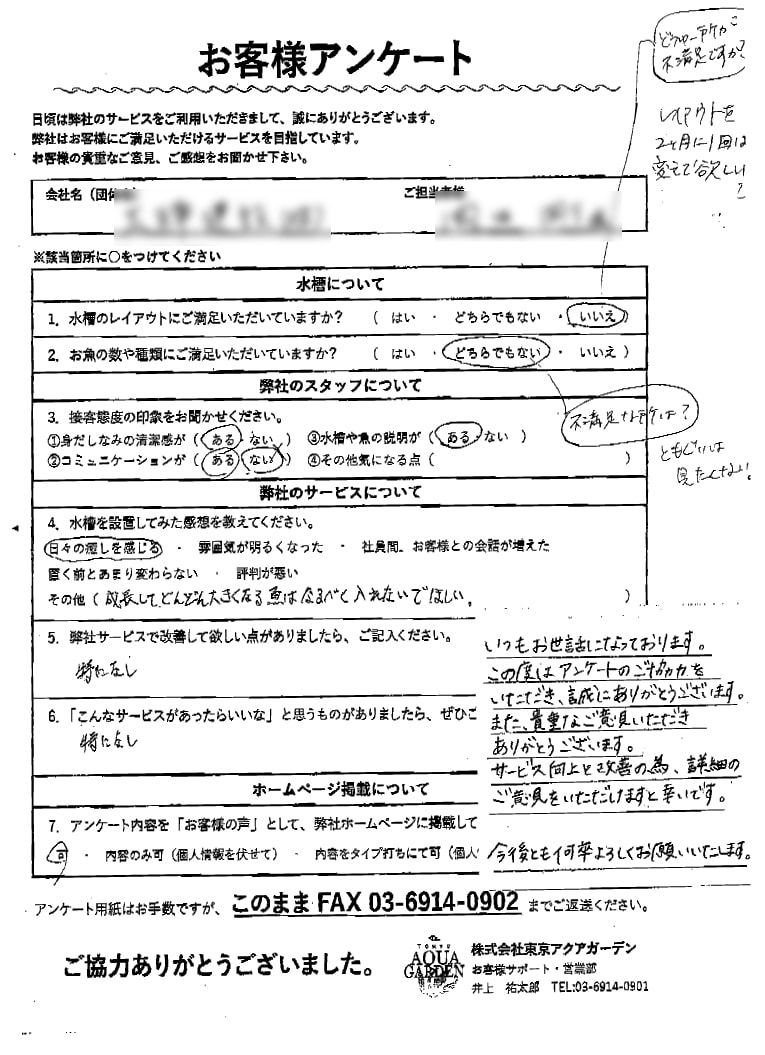 お客様アンケート
どういった所がご
不満足ですか?
レイアウトを
2ヶ月に1回は
変えて欲しい
日頃は弊社のサービスをご利用いただきまして、誠にありがとうございます。
弊社はお客様にご満足いただけるサービスを目指しています。
お客様の貴重なご意見、ご感想をお聞かせ下さい。
会社名（団体
ご担当者様
※該当箇所に〇をつけてください
水槽について
1．水槽のレイアウトにご満足いただいていますか？ （ はい ・ どちらでもない ・ いいえ ）
2．お魚の数や種類にご満足いただいていますか？ （ はい ・ どちらでもない ・ いいえ ）
弊社のスタッフについて
3．接客態度の印象をお聞かせください。
①身だしなみの清潔感が（ ある・ない ） ③水槽や魚の説明が（ ある・ない ）
②コミュニケーションが（ ある・ない ） ④その他気になる点（ ）
不満足な所は?
ともぐいは
見たくない。
弊社のサービスについて
4．水槽を設置してみた感想を教えてください。
日々の癒しを感じる ・ 雰囲気が明るくなった ・ 社員間、お客様との会話が増えた
置く前とあまり変わらない ・ 評判が悪い
その他（ 成長してどんどん大きくなる魚はなるべく入れないでほしい。 ）
5．弊社サービスで改善して欲しい点がありましたら、ご記入ください。
特になし
6．「こんなサービスがあったらいいな」と思うものがありましたら、ぜひご
特になし
ホームページ掲載について
7．アンケート内容を「お客様の声」として、弊社ホームページに掲載して
可 ・ 内容のみ可（個人情報を伏せて）・ 内容をタイプ打ちにて可（個人
いつもお世話になっております。
この度はアンケートのご協力を
いただき、誠にありがとうございます。
また、貴重なご意見いただき
ありがとうございます。
サービス向上と改善の為、詳細の
ご意見をいただけますと幸いです。
今後とも何卒よろしくお願いいたします。
アンケート用紙はお手数ですが、このまま FAX 03-6914-0902 までご返送ください。
ご協力ありがとうございました。
TOKYO
AQUA
GARDEN
株式会社東京アクアガーデン
お客様サポート・営業部
井上 祐太郎 TEL:03-6914-0901